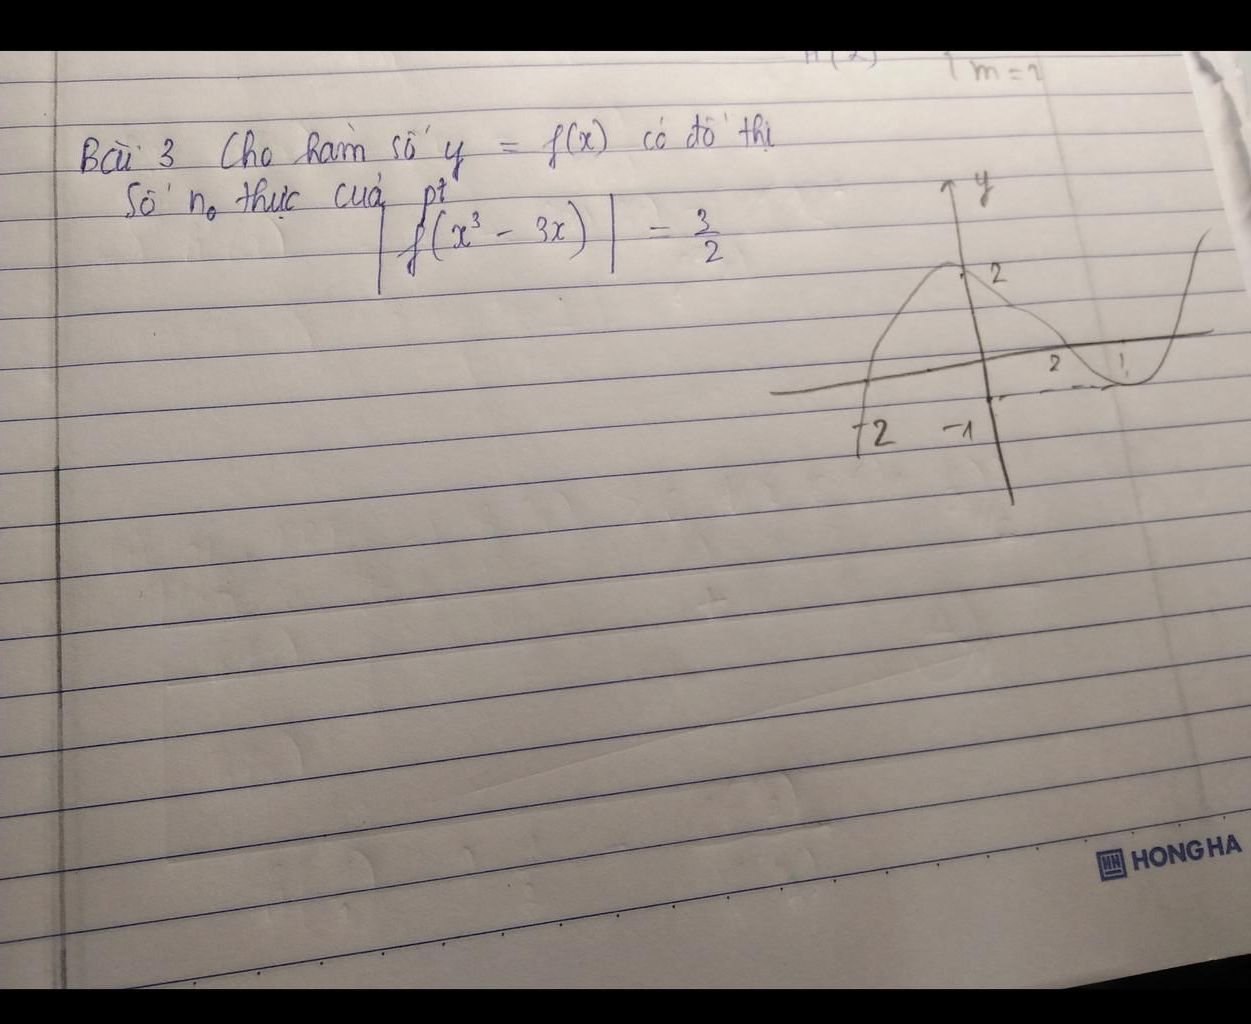 m = 2
Bài 3 Cho hàm số y = f(x) có đồ thị
Số n₀ thực của pt
|f(x³ - 3x)| = 3/2
y
2
2
-2
-1
HN HONG HA